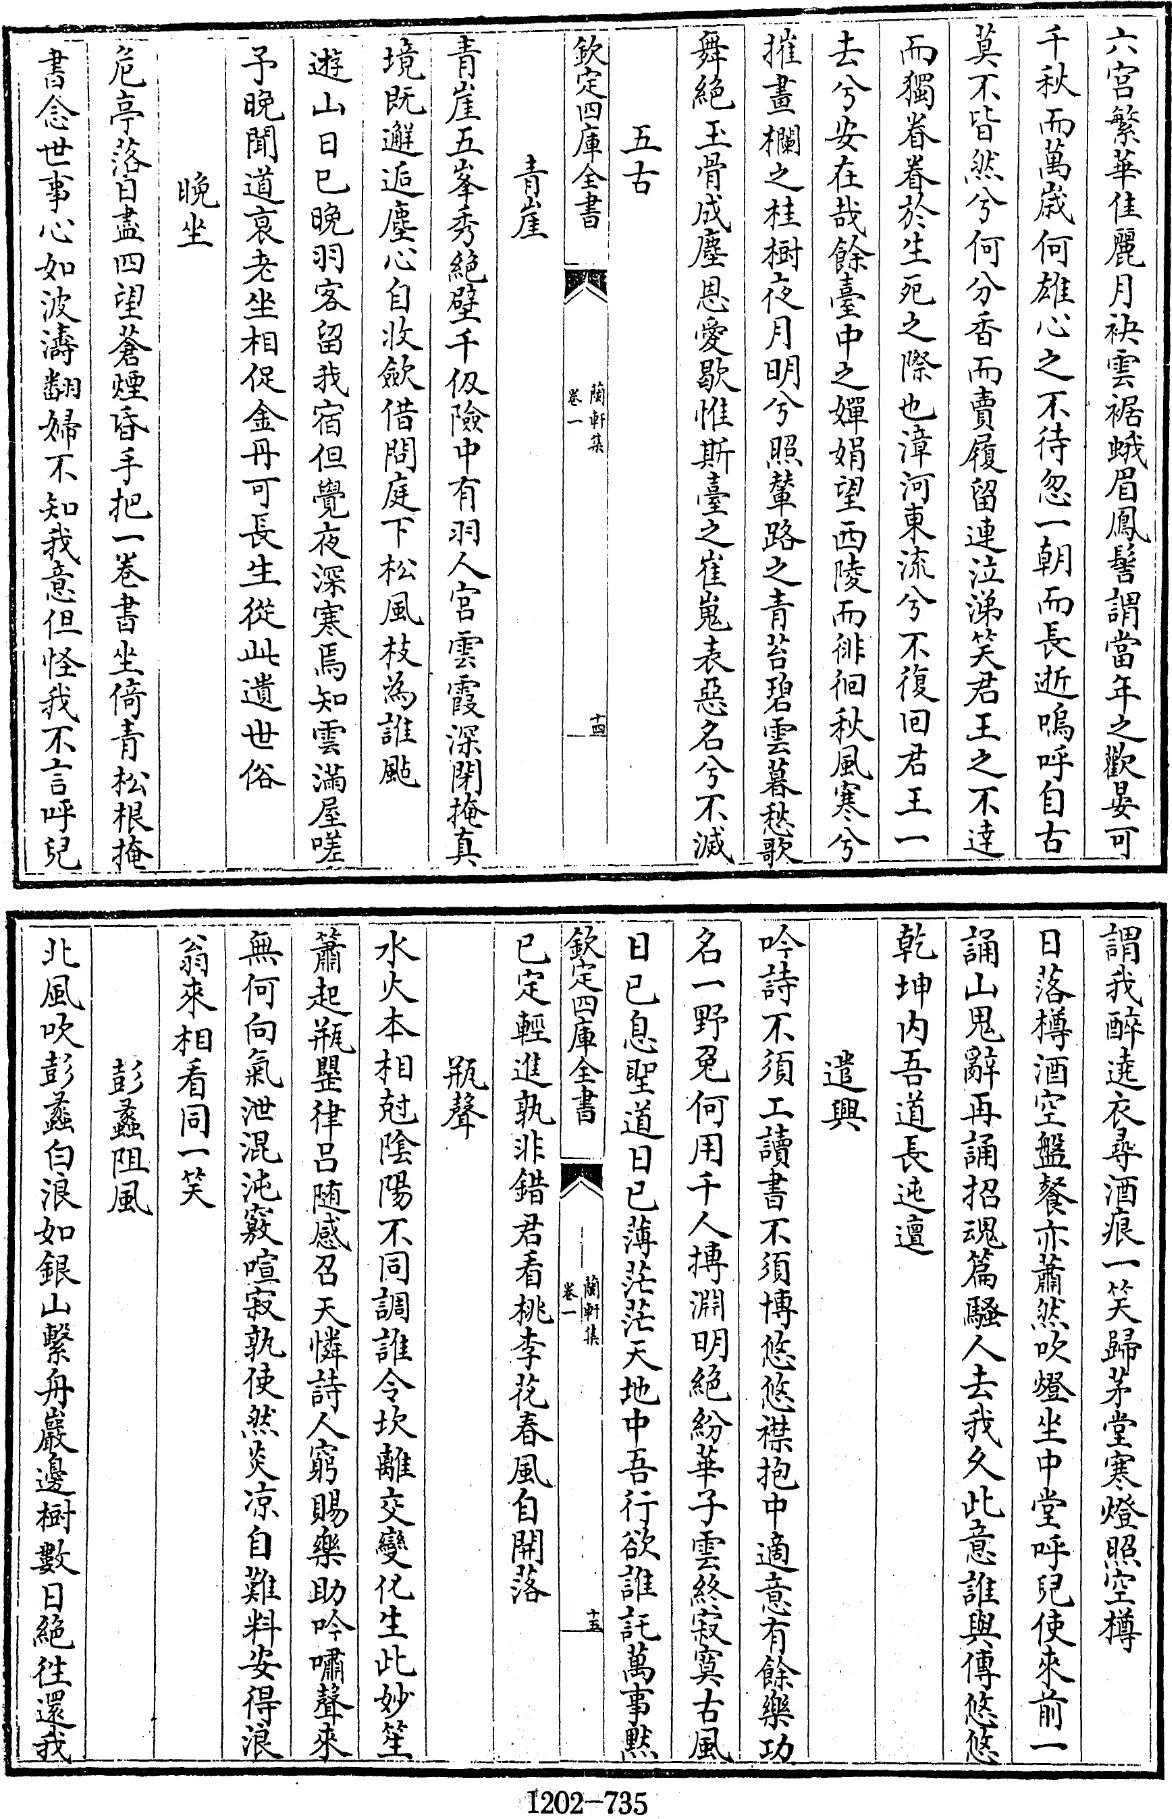 六宮繁華佳麗月袂雲裾蛾眉鳳髻謂當年之歡晏可
千秋而萬歲何雄心之不待忽一朝而長逝嗚呼自古
莫不皆然兮何分香而賣履留連泣涕笑君王之不達
而獨眷眷於生死之際也漳河東流兮不復回君王一
去兮安在哉餘臺中之嬋娟望西陵而徘徊秋風寒兮
摧畫欄之桂樹夜月明兮照輦路之青苔碧雲暮愁歌
舞絶玉骨成塵恩愛歇惟斯臺之崔嵬表惡名兮不滅
五古
欽定四庫全書
蘭軒集
卷一
十四
青崖
青崖五峯秀絶壁千仭險中有羽人宮雲霞深閉掩真
境既邂逅塵心自收歛借問庭下松風枝為誰颭
遊山日已晚羽客留我宿但覺夜深寒焉知雲滿屋嗟
予晚聞道衰老坐相促金丹可長生從此遺世俗
晚坐
危亭落日盡四望蒼煙昏手把一卷書坐倚青松根掩
書念世事心如波濤翻婦不知我意但怪我不言呼兒
謂我醉遶衣尋酒痕一笑歸茅堂寒燈照空樽
日落樽酒空盤餐亦蕭然吹燈坐中堂呼兒使來前一
誦山鬼辭再誦招魂篇騷人去我久此意誰與傳悠悠
乾坤内吾道長迍邅
遣興
吟詩不須工讀書不須博悠悠襟抱中適意有餘樂功
名一野兔何用千人搏淵明絶紛華子雲終寂寞古風
日已息聖道日已薄茫茫天地中吾行欲誰託萬事黙
欽定四庫全書
蘭軒集
卷一
十五
已定輕進孰非錯君看桃李花春風自開落
瓶聲
水火本相尅陰陽不同調誰令坎離交變化生此妙笙
簫起瓶罌律吕随感召天憐詩人窮賜樂助吟嘯聲來
無何向氣泄混沌竅喧寂孰使然炎凉自難料安得浪
翁來相看同一笑
彭蠡阻風
北風吹彭蠡白浪如銀山繫舟巖邊樹數日絶往還我
1202-735